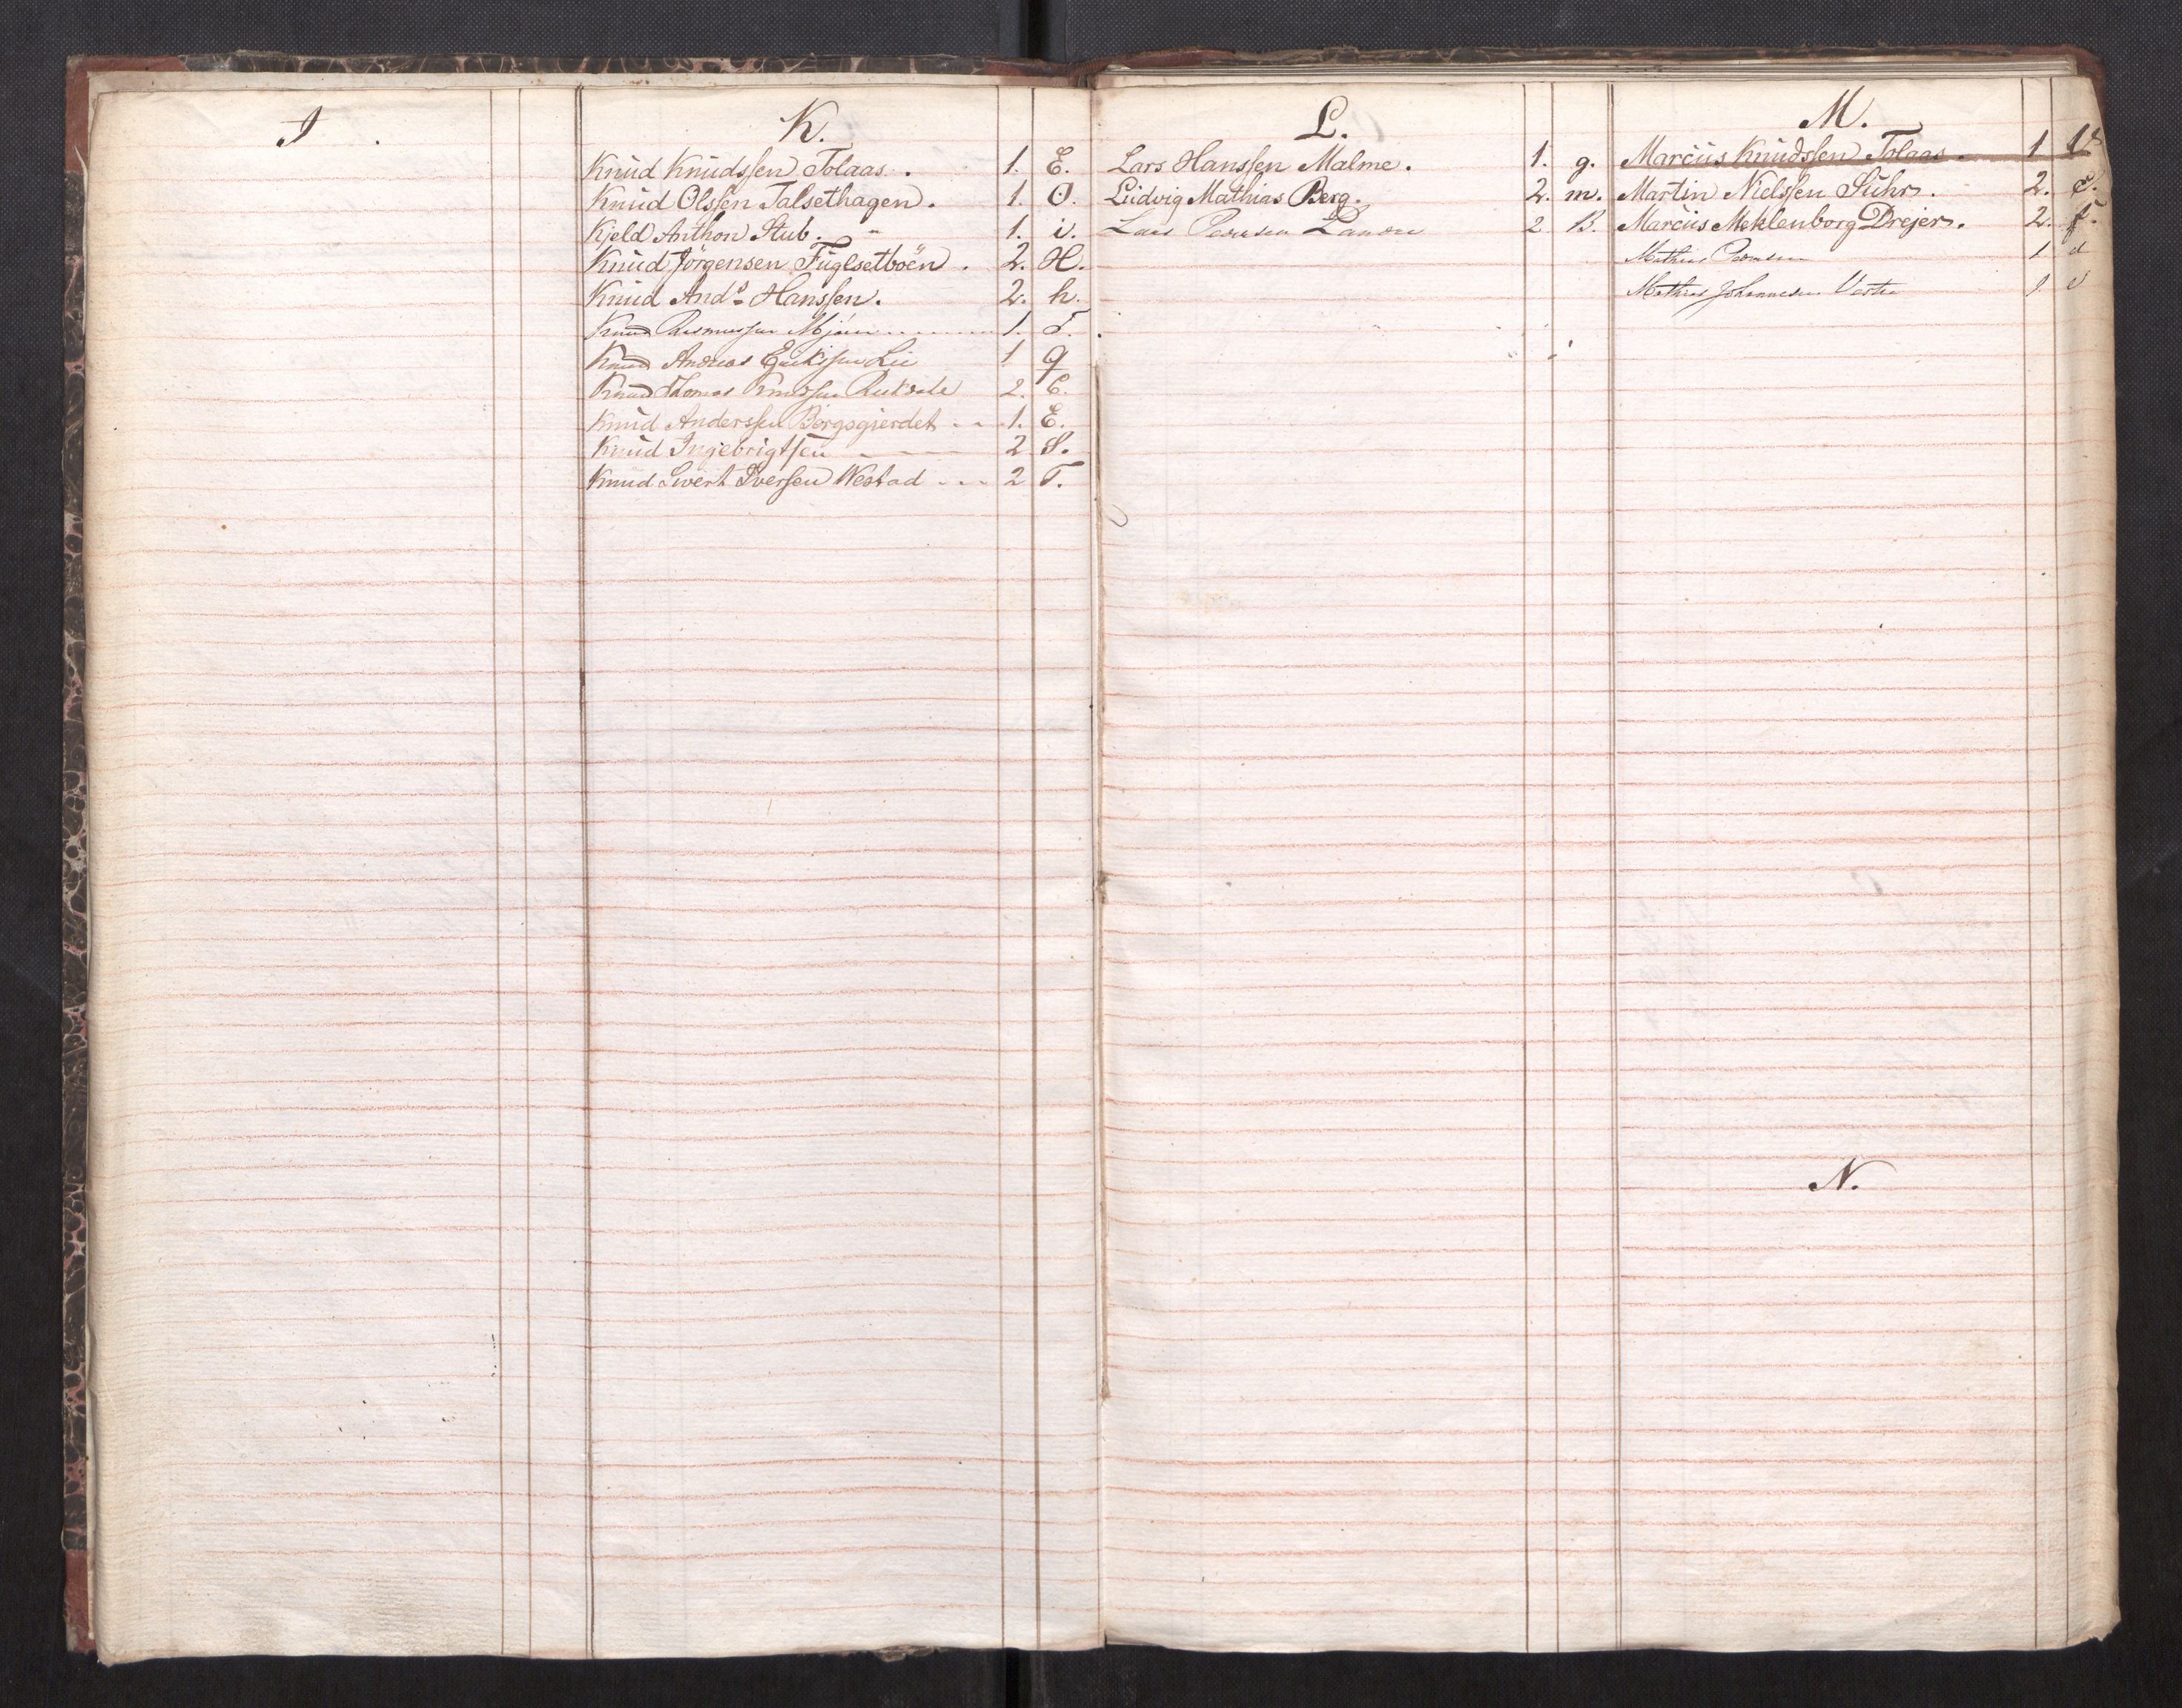 I.
K.
Knud Knudssen Tolaas. 1. E.
Knud Olssen Talsethagen. 1. O.
Kjeld Anthon Stub. " 1. i.
Knud Jørgensen Fuglsetboën. 2. H.
Knud And^s Hanssen. 2. h.
Knud Rasmussen 1. T.
Knud Andreas Lie 1 q
Knud Thomas Knudssen 2. C.
Knud Anderssen Borgsgierdet 1. E.
Knud Ingebrigtsen 2 S.
Knud Sivert Iverssen Westad 2 T.
L.
Lars Hanssen Malme. 1. g.
Ludvig Mathias Berg. 2. m.
Lars Pedersen 2 B.
M.
Marcus Knudssen Tolaas. 1
Martin Nielssen Suhr. 2. e.
Marcus Meklenborg Drejer. 2. f.
Mathias Pedersen 1 d
Mathias Johannesen 1
N.